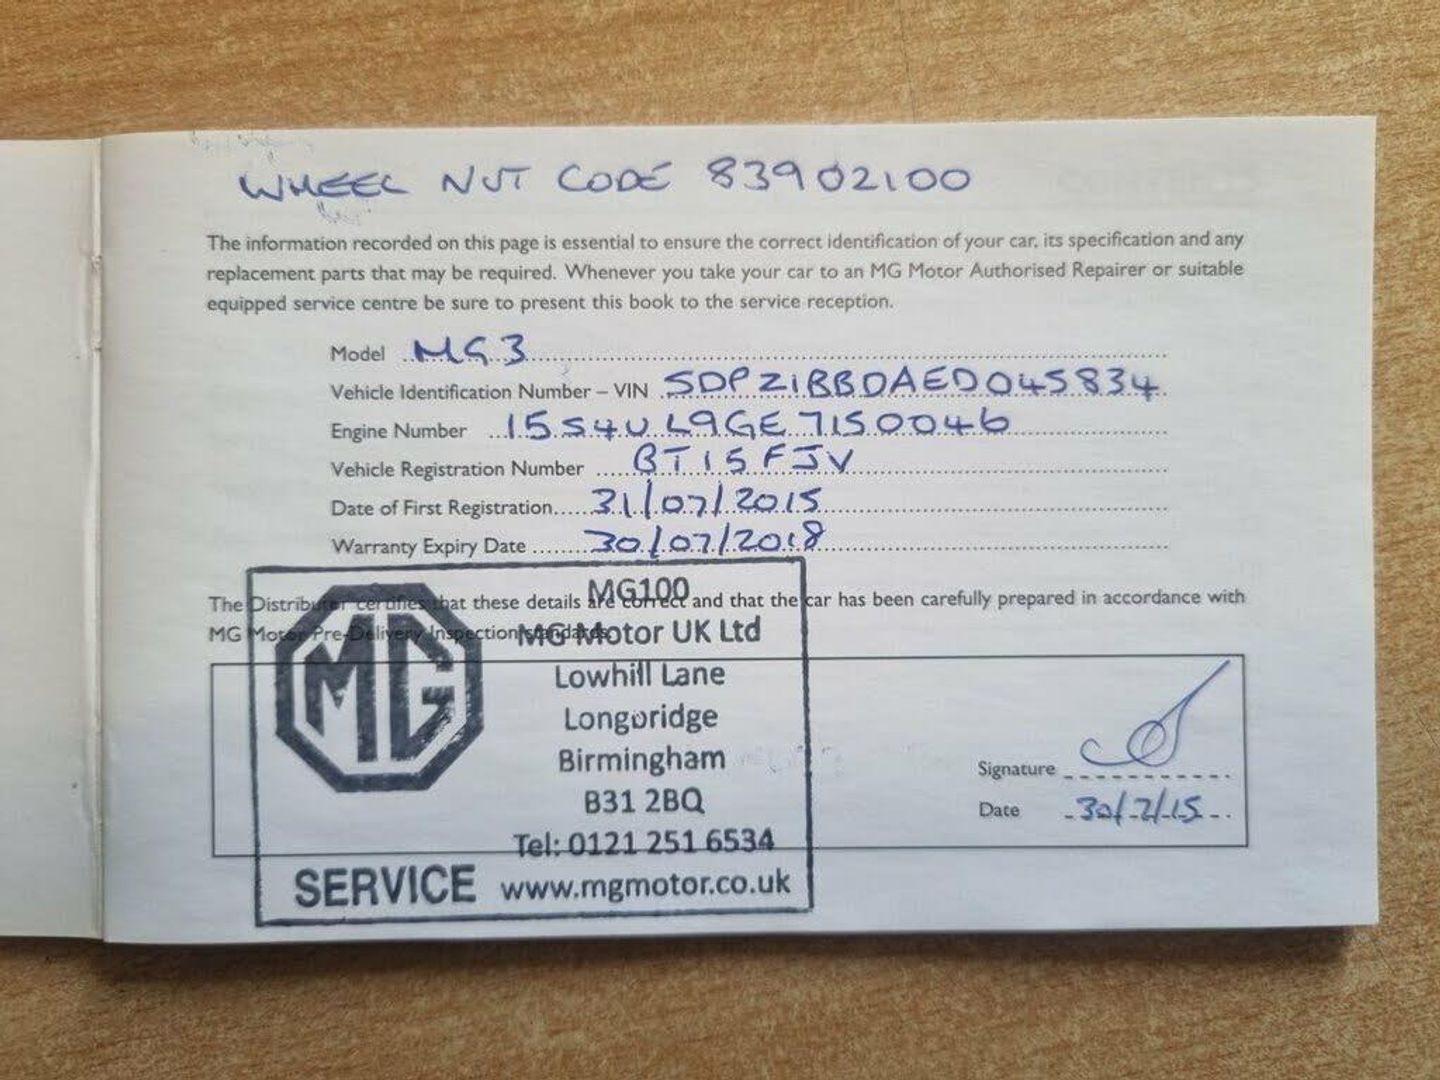 WHEEL NUT CODE 83902100
The information recorded on this page is essential to ensure the correct identification of your car, its specification and any
replacement parts that may be required. Whenever you take your car to an MG Motor Authorised Repairer or suitable
equipped service centre be sure to present this book to the service reception.
Model MG3
Vehicle Identification Number – VIN SDPZ1BBDAED045834
Engine Number 15S4U L9GE7150046
Vehicle Registration Number BT15FJV
Date of First Registration 31/07/2015
Warranty Expiry Date 30/07/2018
The Distributor certifies that these details are correct and that the car has been carefully prepared in accordance with
MG Motor Pre-Delivery Inspection standards.
MG
MG100
MG Motor UK Ltd
Lowhill Lane
Longbridge
Birmingham
B31 2BQ
Tel: 0121 251 6534
SERVICE www.mgmotor.co.uk
Signature
Date 30/7/15